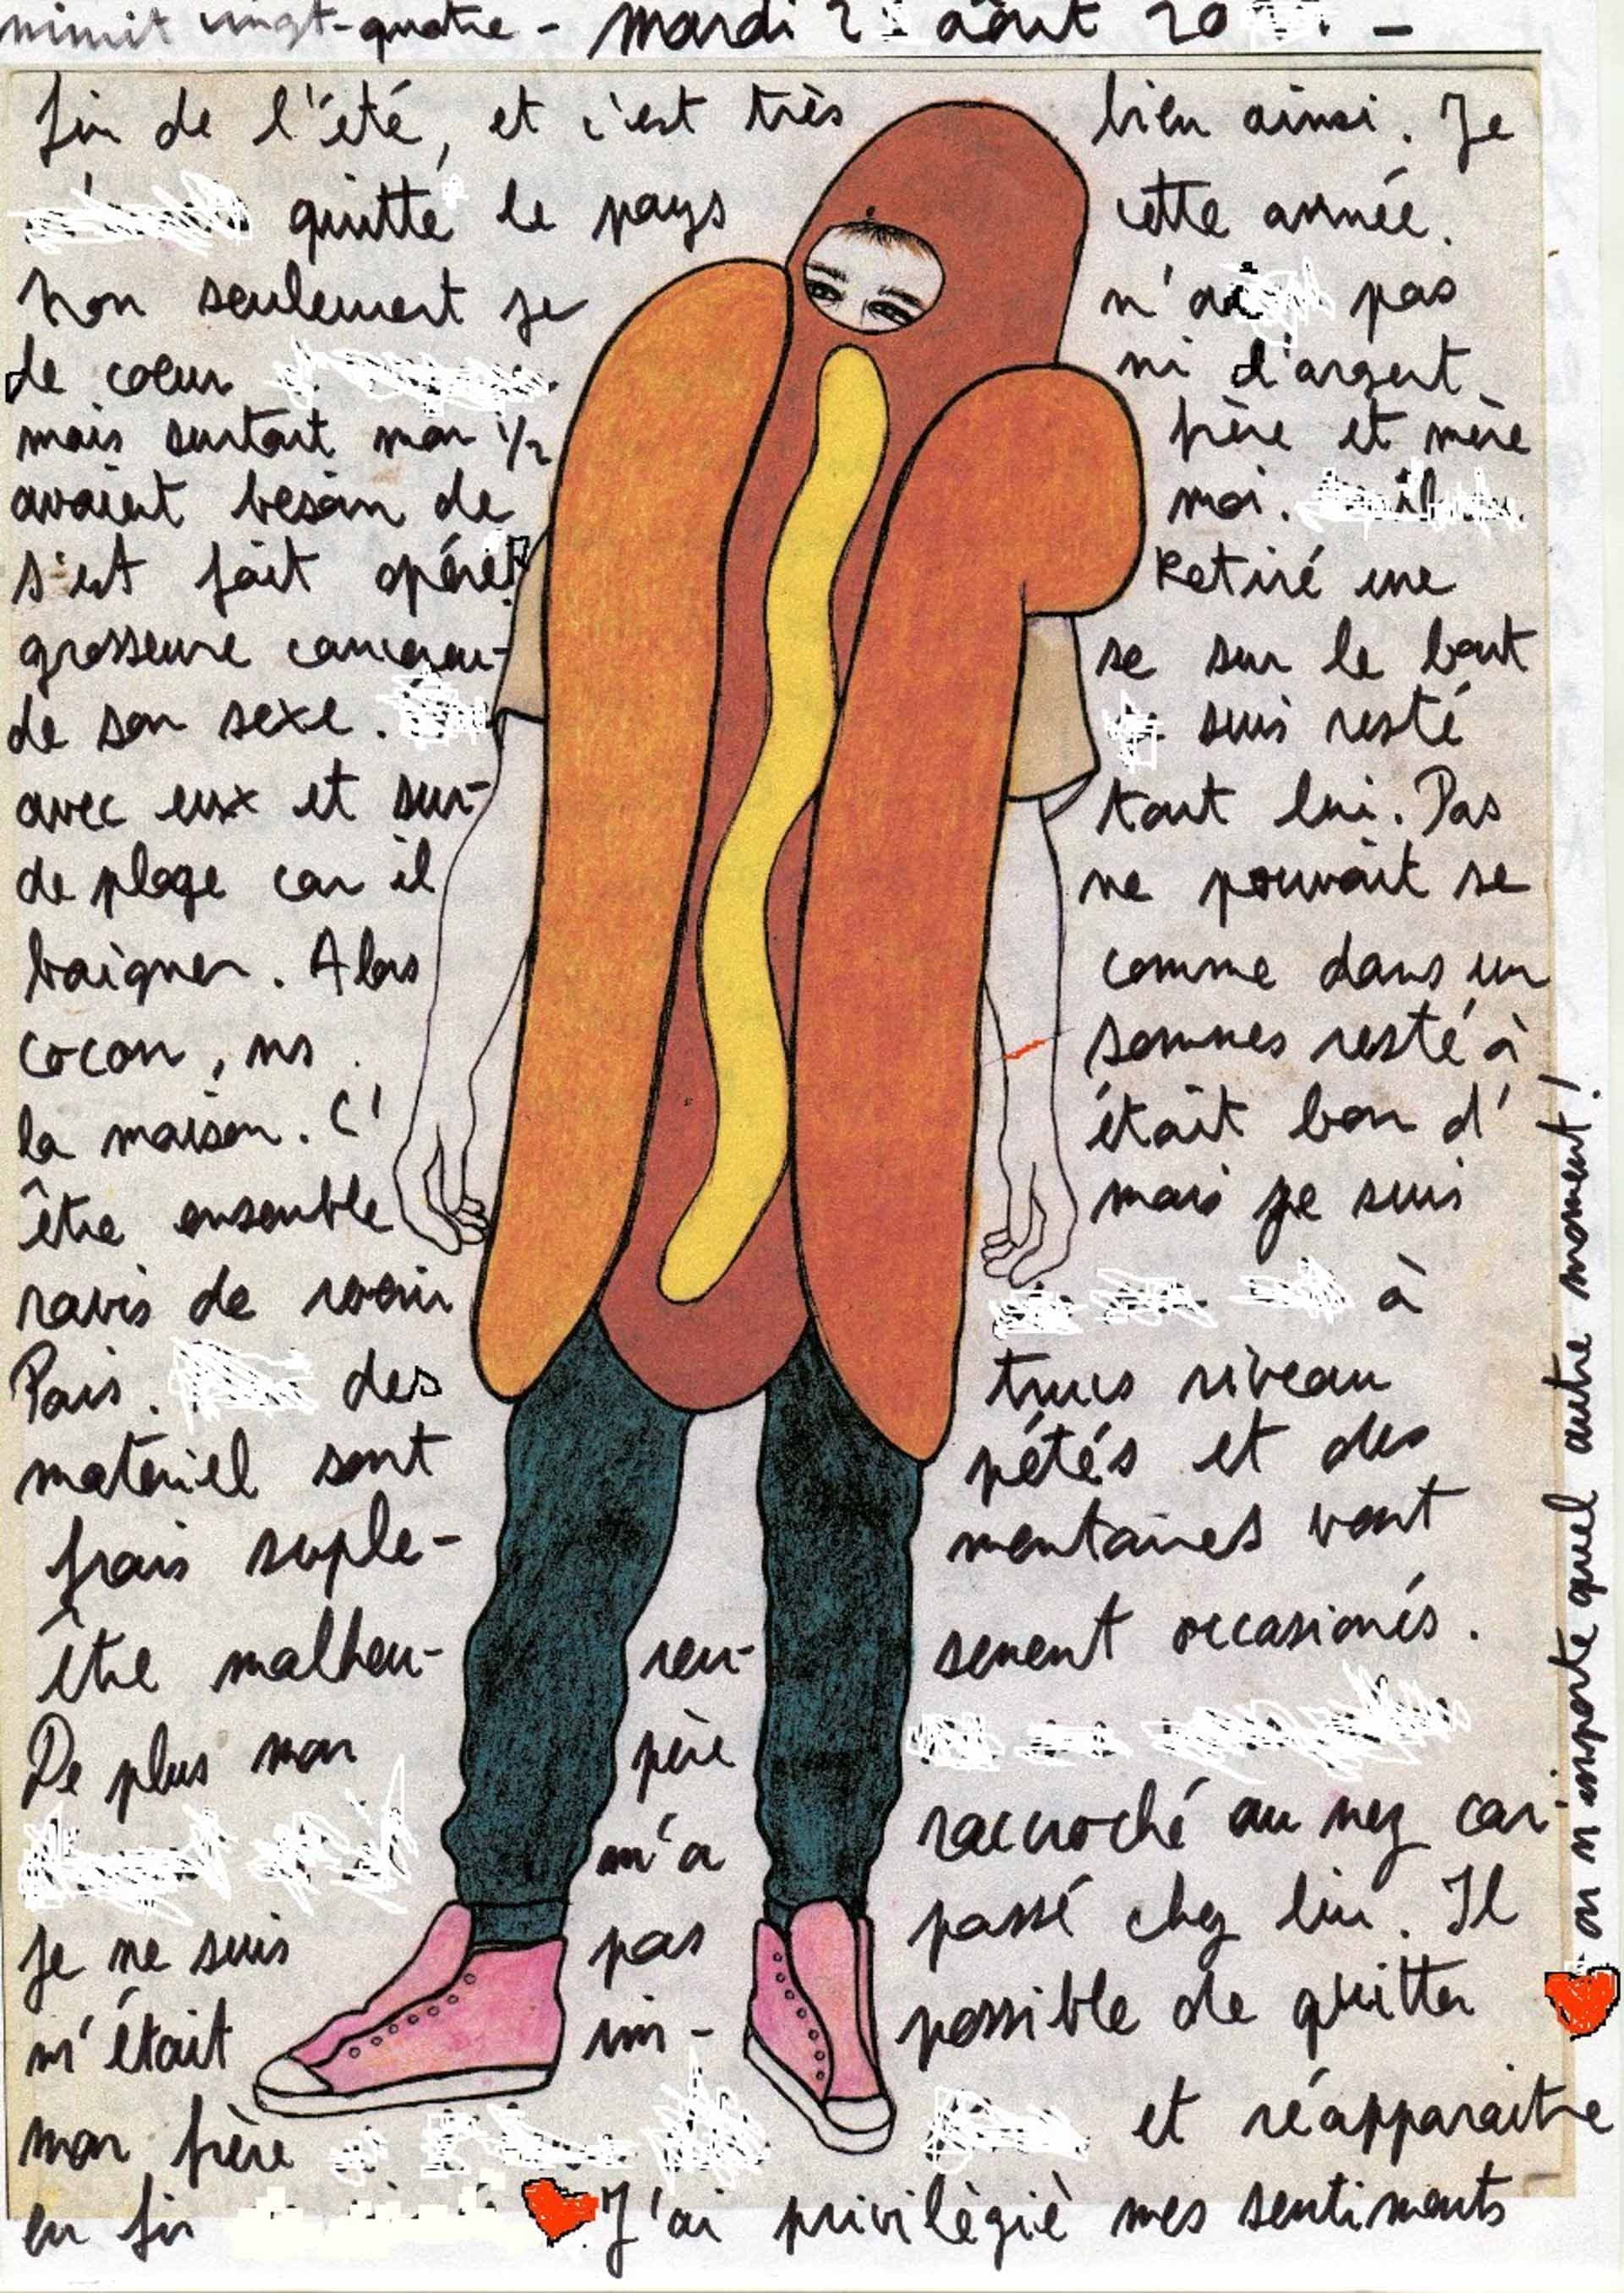 minuit vingt-quatre - mardi 2 août 20 . -
fin de l'été, et c'est très bien ainsi. Je
quitté le pays cette année.
Non seulement je n'ai pas
de coeur ni d'argent
mais surtout mon 1/2 frère et mère
avaient besoin de moi.
s'est fait opérer Retiré une
grosseure cancereu- se sur le bout
de son sexe. suis resté
avec eux et sur- tout lui. Pas
de plage car il ne pouvait se
baigner. Alors comme dans un
cocon, ns sommes resté à
la maison. C' était bon d'
être ensemble mais je suis
ravis de à
Paris. des trucs niveau
matériel sont pétés et des
frais suple- mentaires vont
être malheu- reu- sement occasionés.
De plus mon père
m'a raccroché au nez car
je ne suis pas passé chez lui. Il
m'était im- possible de quitter
mon frère et réapparaitre
en fin ♥ J'ai privilègiè mes sentiments
♥ on n'importe quel autre moment!